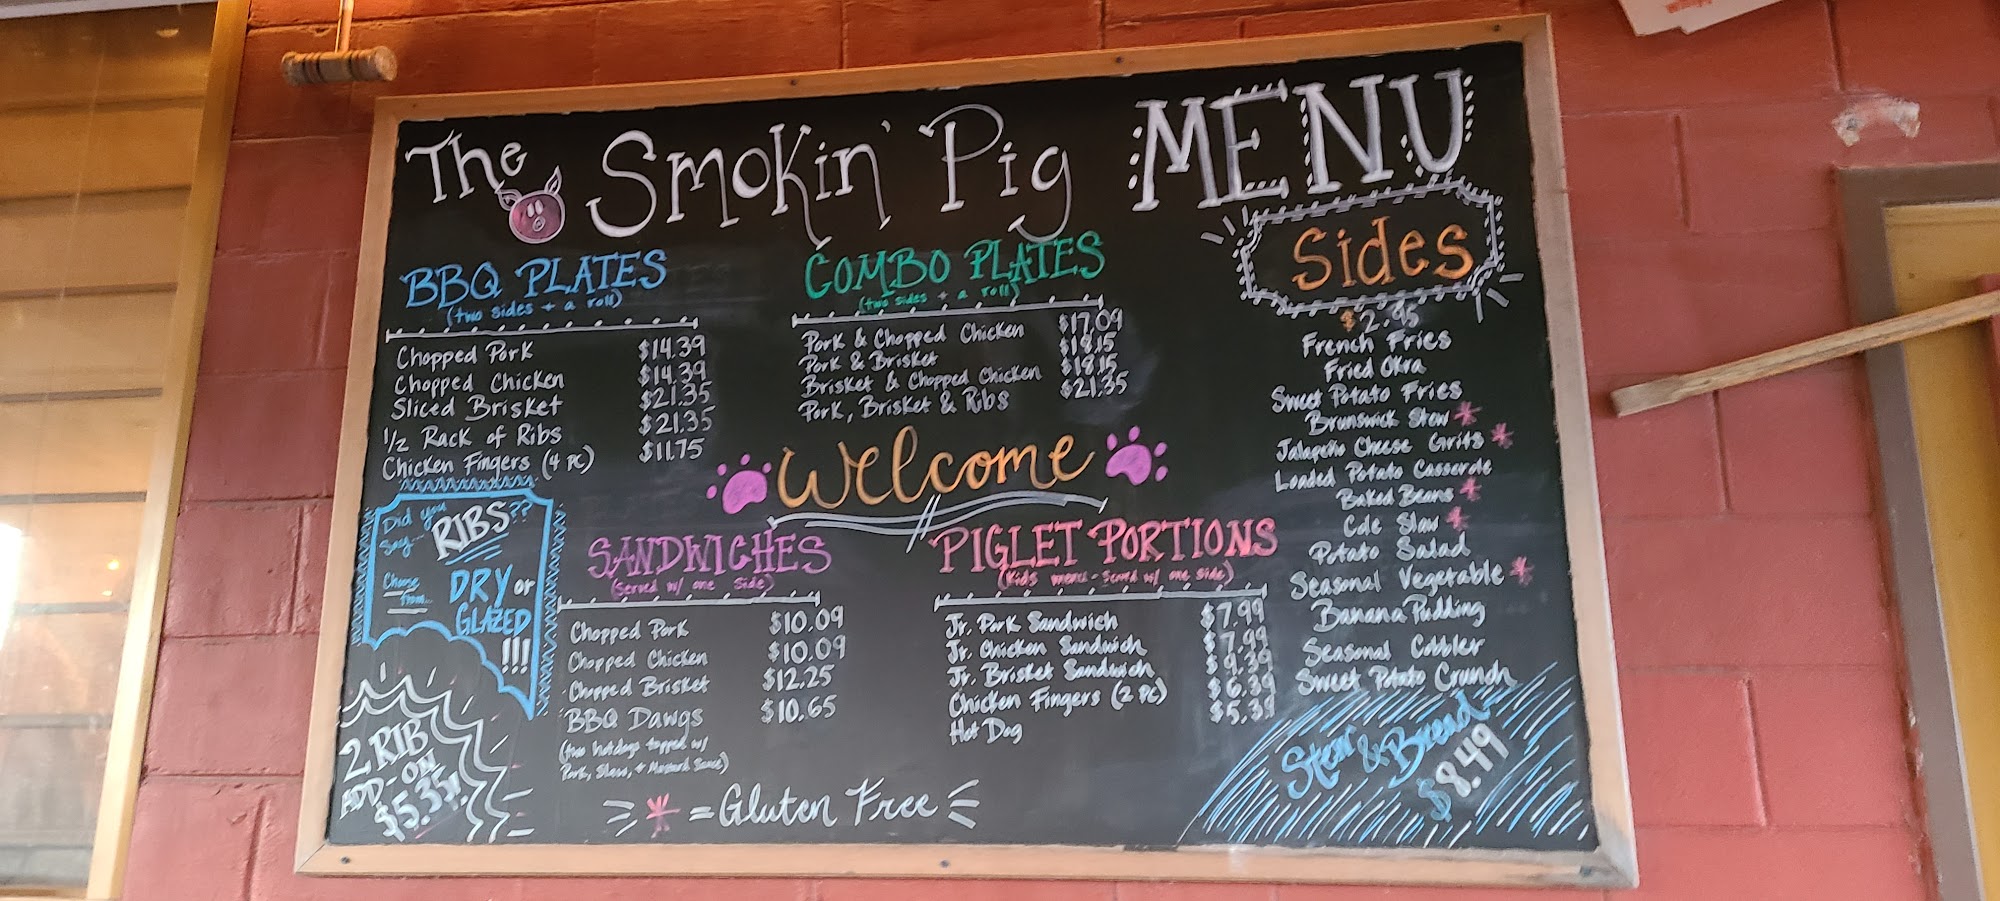 The Smokin' Pig MENU
BBQ PLATES
(two sides + a roll)
Chopped Pork $14.39
Chopped Chicken $14.39
Sliced Brisket $21.35
1/2 Rack of Ribs $21.35
Chicken Fingers (4 PC) $11.75
COMBO PLATES
(two sides + a roll)
Pork & Chopped Chicken $17.09
Pork & Brisket $18.15
Brisket & Chopped Chicken $18.15
Pork, Brisket & Ribs $21.35
Welcome
Did you
say...
RIBS??
Choose
from...
DRY or
GLAZED
!!!
2 RIB
ADD-ON
$5.35!
SANDWICHES
(Served w/ one side)
Chopped Pork $10.09
Chopped Chicken $10.09
Chopped Brisket $12.25
BBQ Dawgs $10.65
(two hotdogs topped w/
Pork, Slaw, + Mustard Sauce)
PIGLET PORTIONS
(Kids menu - served w/ one side)
Jr. Pork Sandwich $7.99
Jr. Chicken Sandwich $7.99
Jr. Brisket Sandwich $9.39
Chicken Fingers (2 PC) $6.39
Hot Dog $5.39
* = Gluten Free
Sides
$2.95
French Fries
Fried Okra
Sweet Potato Fries
Brunswick Stew *
Jalapeño Cheese Grits *
Loaded Potato Casserole
Baked Beans *
Cole Slaw *
Potato Salad
Seasonal Vegetable *
Banana Pudding
Seasonal Cobbler
Sweet Potato Crunch
Stew & Bread
$8.49